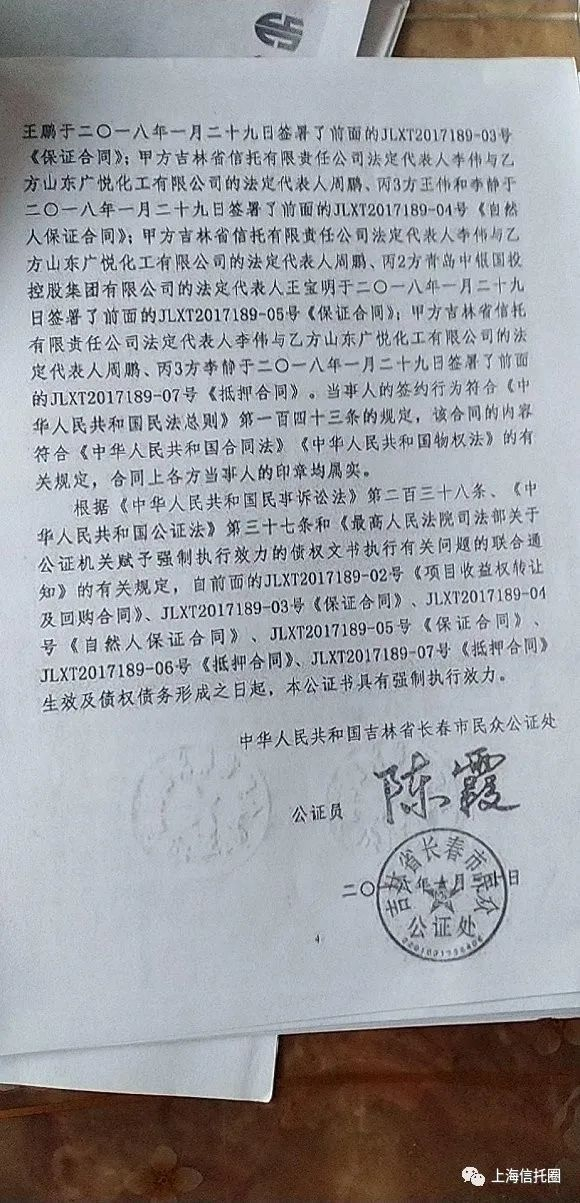 王鹏于二〇一八年一月二十九日签署了前面的JLXT2017189-03号
《保证合同》；甲方吉林省信托有限责任公司法定代表人李伟与乙
方山东广悦化工有限公司的法定代表人周鹏、丙3方王伟和李静于
二〇一八年一月二十九日签署了前面的JLXT2017189-04号《自然
人保证合同》；甲方吉林省信托有限责任公司法定代表人李伟与乙
方山东广悦化工有限公司的法定代表人周鹏、丙2方青岛中银国投
控股集团有限公司的法定代表人王宝明于二〇一八年一月二十九
日签署了前面的JLXT2017189-05号《保证合同》；甲方吉林省信托
有限责任公司法定代表人李伟与乙方山东广悦化工有限公司的法
定代表人周鹏、丙3方李静于二〇一八年一月二十九日签署了前面
的JLXT2017189-07号《抵押合同》。当事人的签约行为符合《中
华人民共和国民法总则》第一百四十三条的规定，该合同的内容
符合《中华人民共和国合同法》《中华人民共和国物权法》的有
关规定，合同上各方当事人的印章均属实。
根据《中华人民共和国民事诉讼法》第二百三十八条、《中
华人民共和国公证法》第三十七条和《最高人民法院司法部关于
公证机关赋予强制执行效力的债权文书执行有关问题的联合通
知》的有关规定，自前面的JLXT2017189-02号《项目收益权转让
及回购合同》、JLXT2017189-03号《保证合同》、JLXT2017189-04
号《自然人保证合同》、JLXT2017189-05号《保证合同》、
JLXT2017189-06号《抵押合同》、JLXT2017189-07号《抵押合同》
生效及债权债务形成之日起，本公证书具有强制执行效力。
中华人民共和国吉林省长春市民众公证处
公证员 陈霞
二〇 年 月 日
吉林省长春市民众
公证处
4
上海信托圈